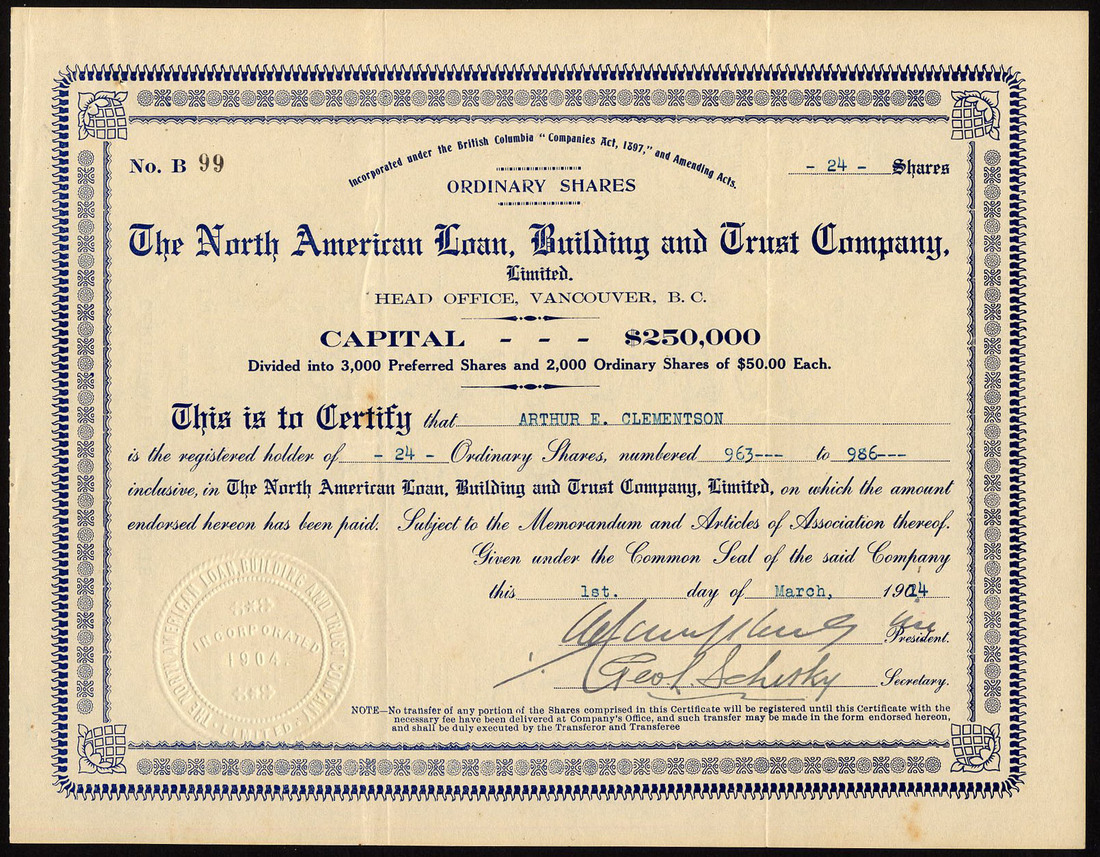 Incorporated under the British Columbia "Companies Act, 1897," and Amending Acts.
No. B 99
- 24 - Shares
ORDINARY SHARES
The North American Loan, Building and Trust Company,
Limited.
HEAD OFFICE, VANCOUVER, B. C.
CAPITAL - - - $250,000
Divided into 3,000 Preferred Shares and 2,000 Ordinary Shares of $50.00 Each.
This is to Certify that ARTHUR E. CLEMENTSON
is the registered holder of - 24 - Ordinary Shares, numbered 963--- to 986---
inclusive, in The North American Loan, Building and Trust Company, Limited, on which the amount
endorsed hereon has been paid. Subject to the Memorandum and Articles of Association thereof.
Given under the Common Seal of the said Company
this 1st. day of March, 1914
President.
Geo. Schetky Secretary.
THE NORTH AMERICAN LOAN, BUILDING AND TRUST COMPANY
LIMITED
INCORPORATED
1904
NOTE—No transfer of any portion of the Shares comprised in this Certificate will be registered until this Certificate with the
necessary fee have been delivered at Company's Office, and such transfer may be made in the form endorsed hereon,
and shall be duly executed by the Transferor and Transferee